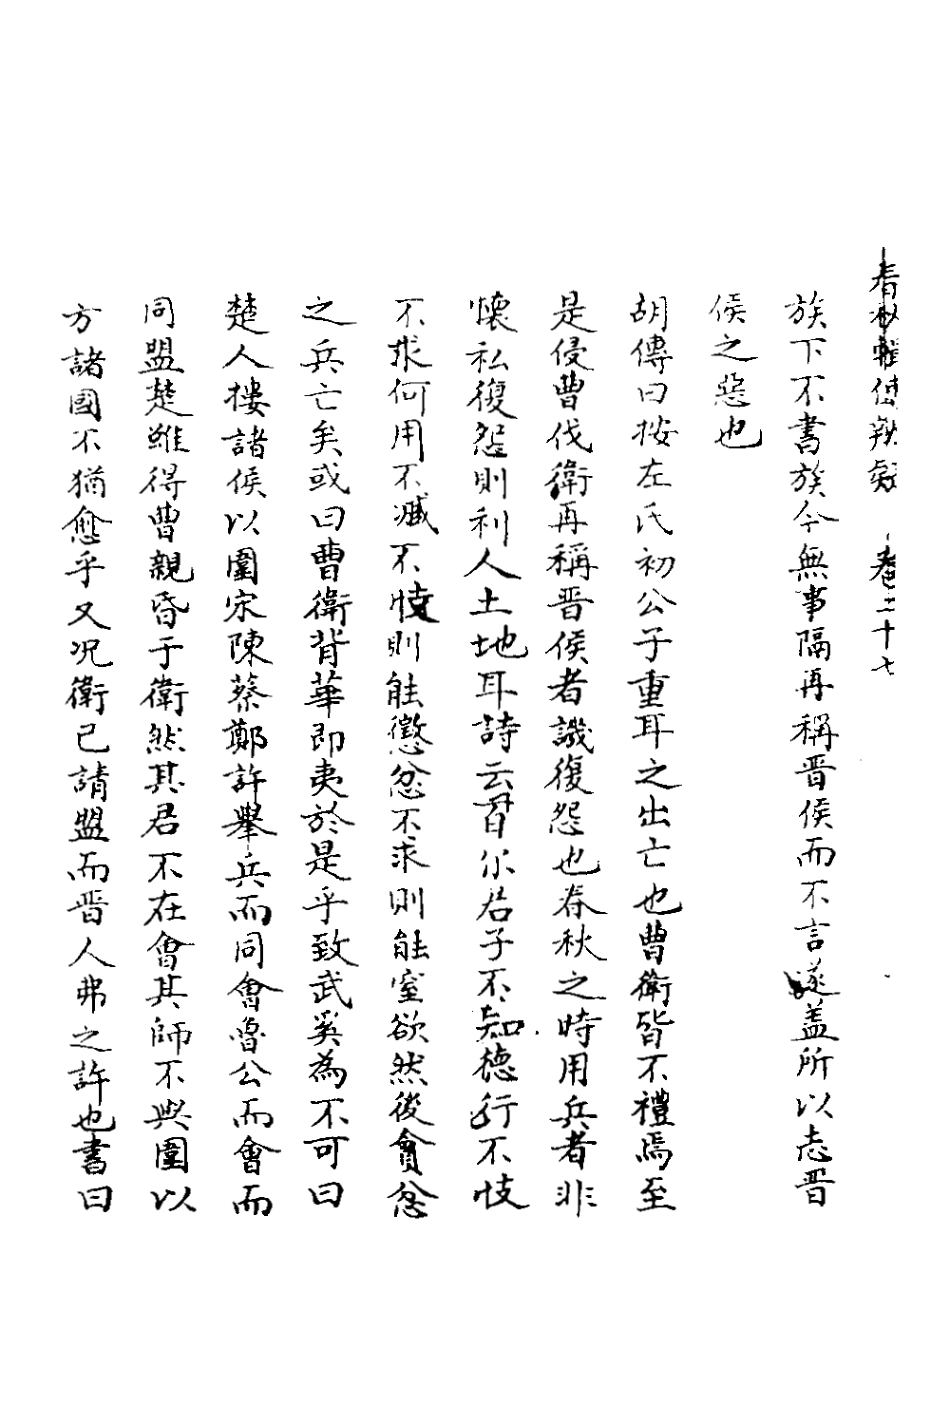 春秋輯傳辨疑 卷二十七
族下不書族今無事隔再稱晋侯而不言遂盖所以志晋
侯之惡也
胡傳曰按左氏初公子重耳之出亡也曹衛皆不禮焉至
是侵曹伐衛再稱晋侯者譏復怨也春秋之時用兵者非
懷私復怨則利人土地耳詩云百尔君子不知德行不忮
不求何用不臧不忮則能懲忿不求則能窒欲然後貪忿
之兵亡矣或曰曹衛背華即夷於是乎致武奚為不可曰
楚人摟諸侯以圍宋陳蔡鄭許舉兵而同會魯公而會而
同盟楚雖得曹親昏于衛然其君不在會其師不與圍以
方諸國不猶愈乎又况衛已請盟而晋人弗之許也書曰